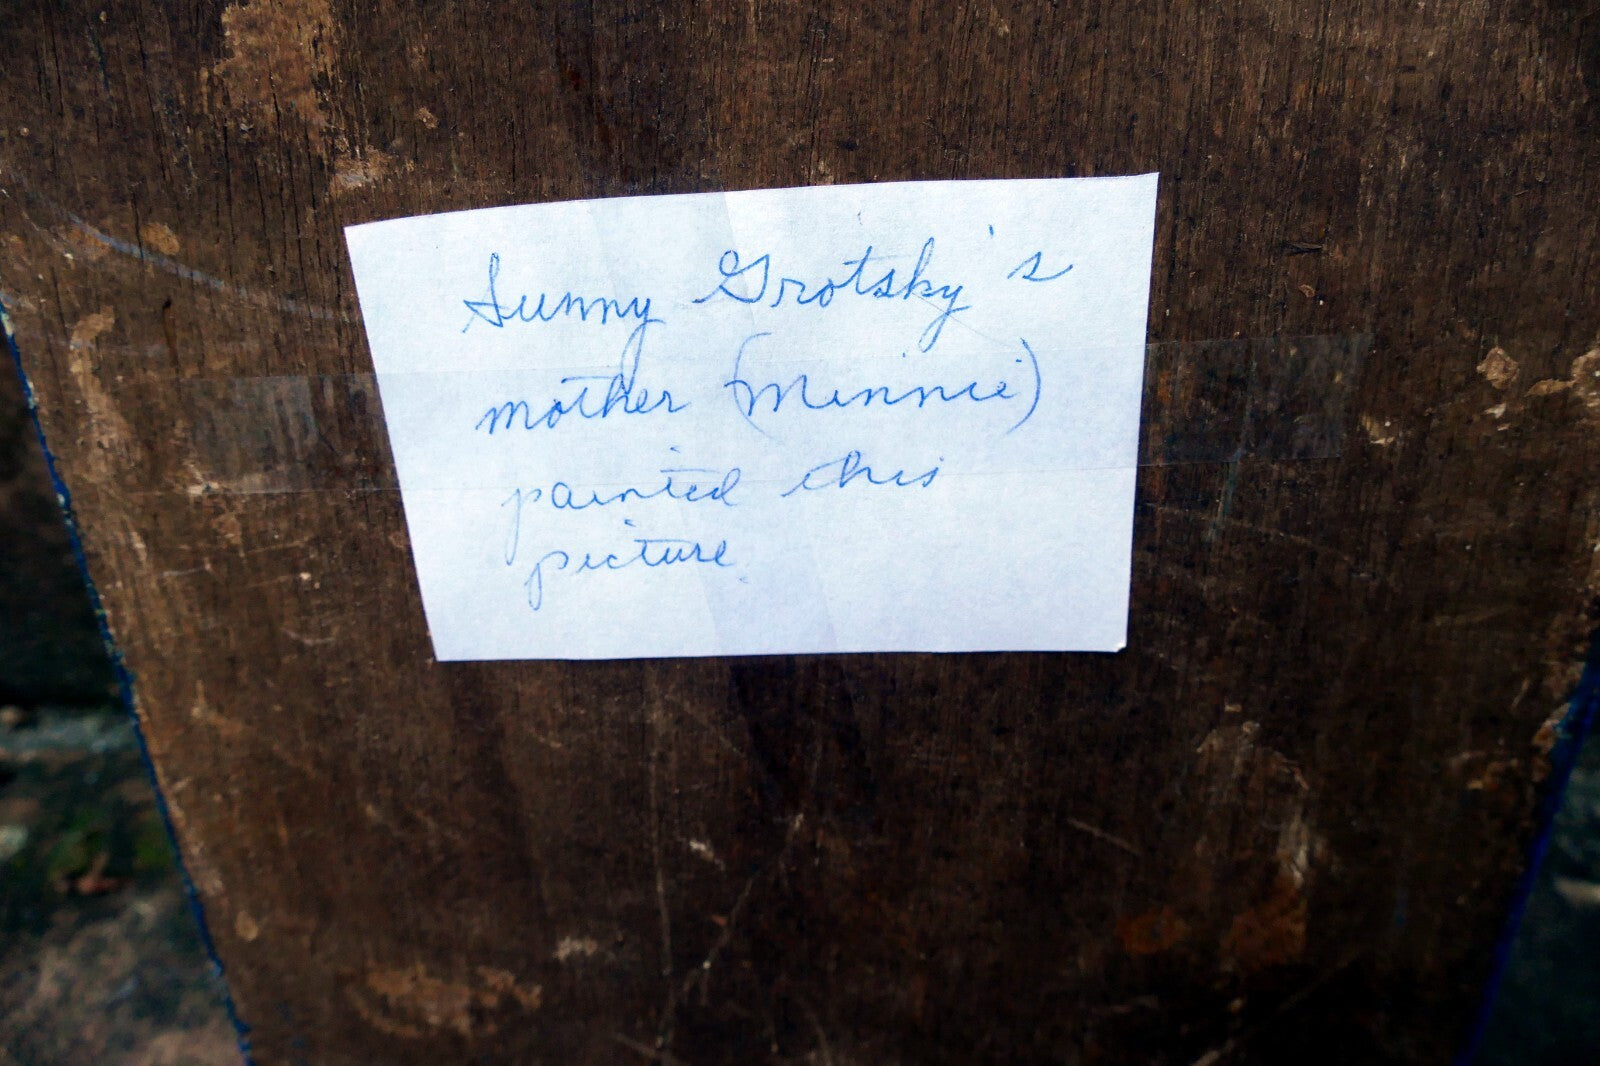 Sunny Grotsky's
mother (Minnie)
painted this
picture.